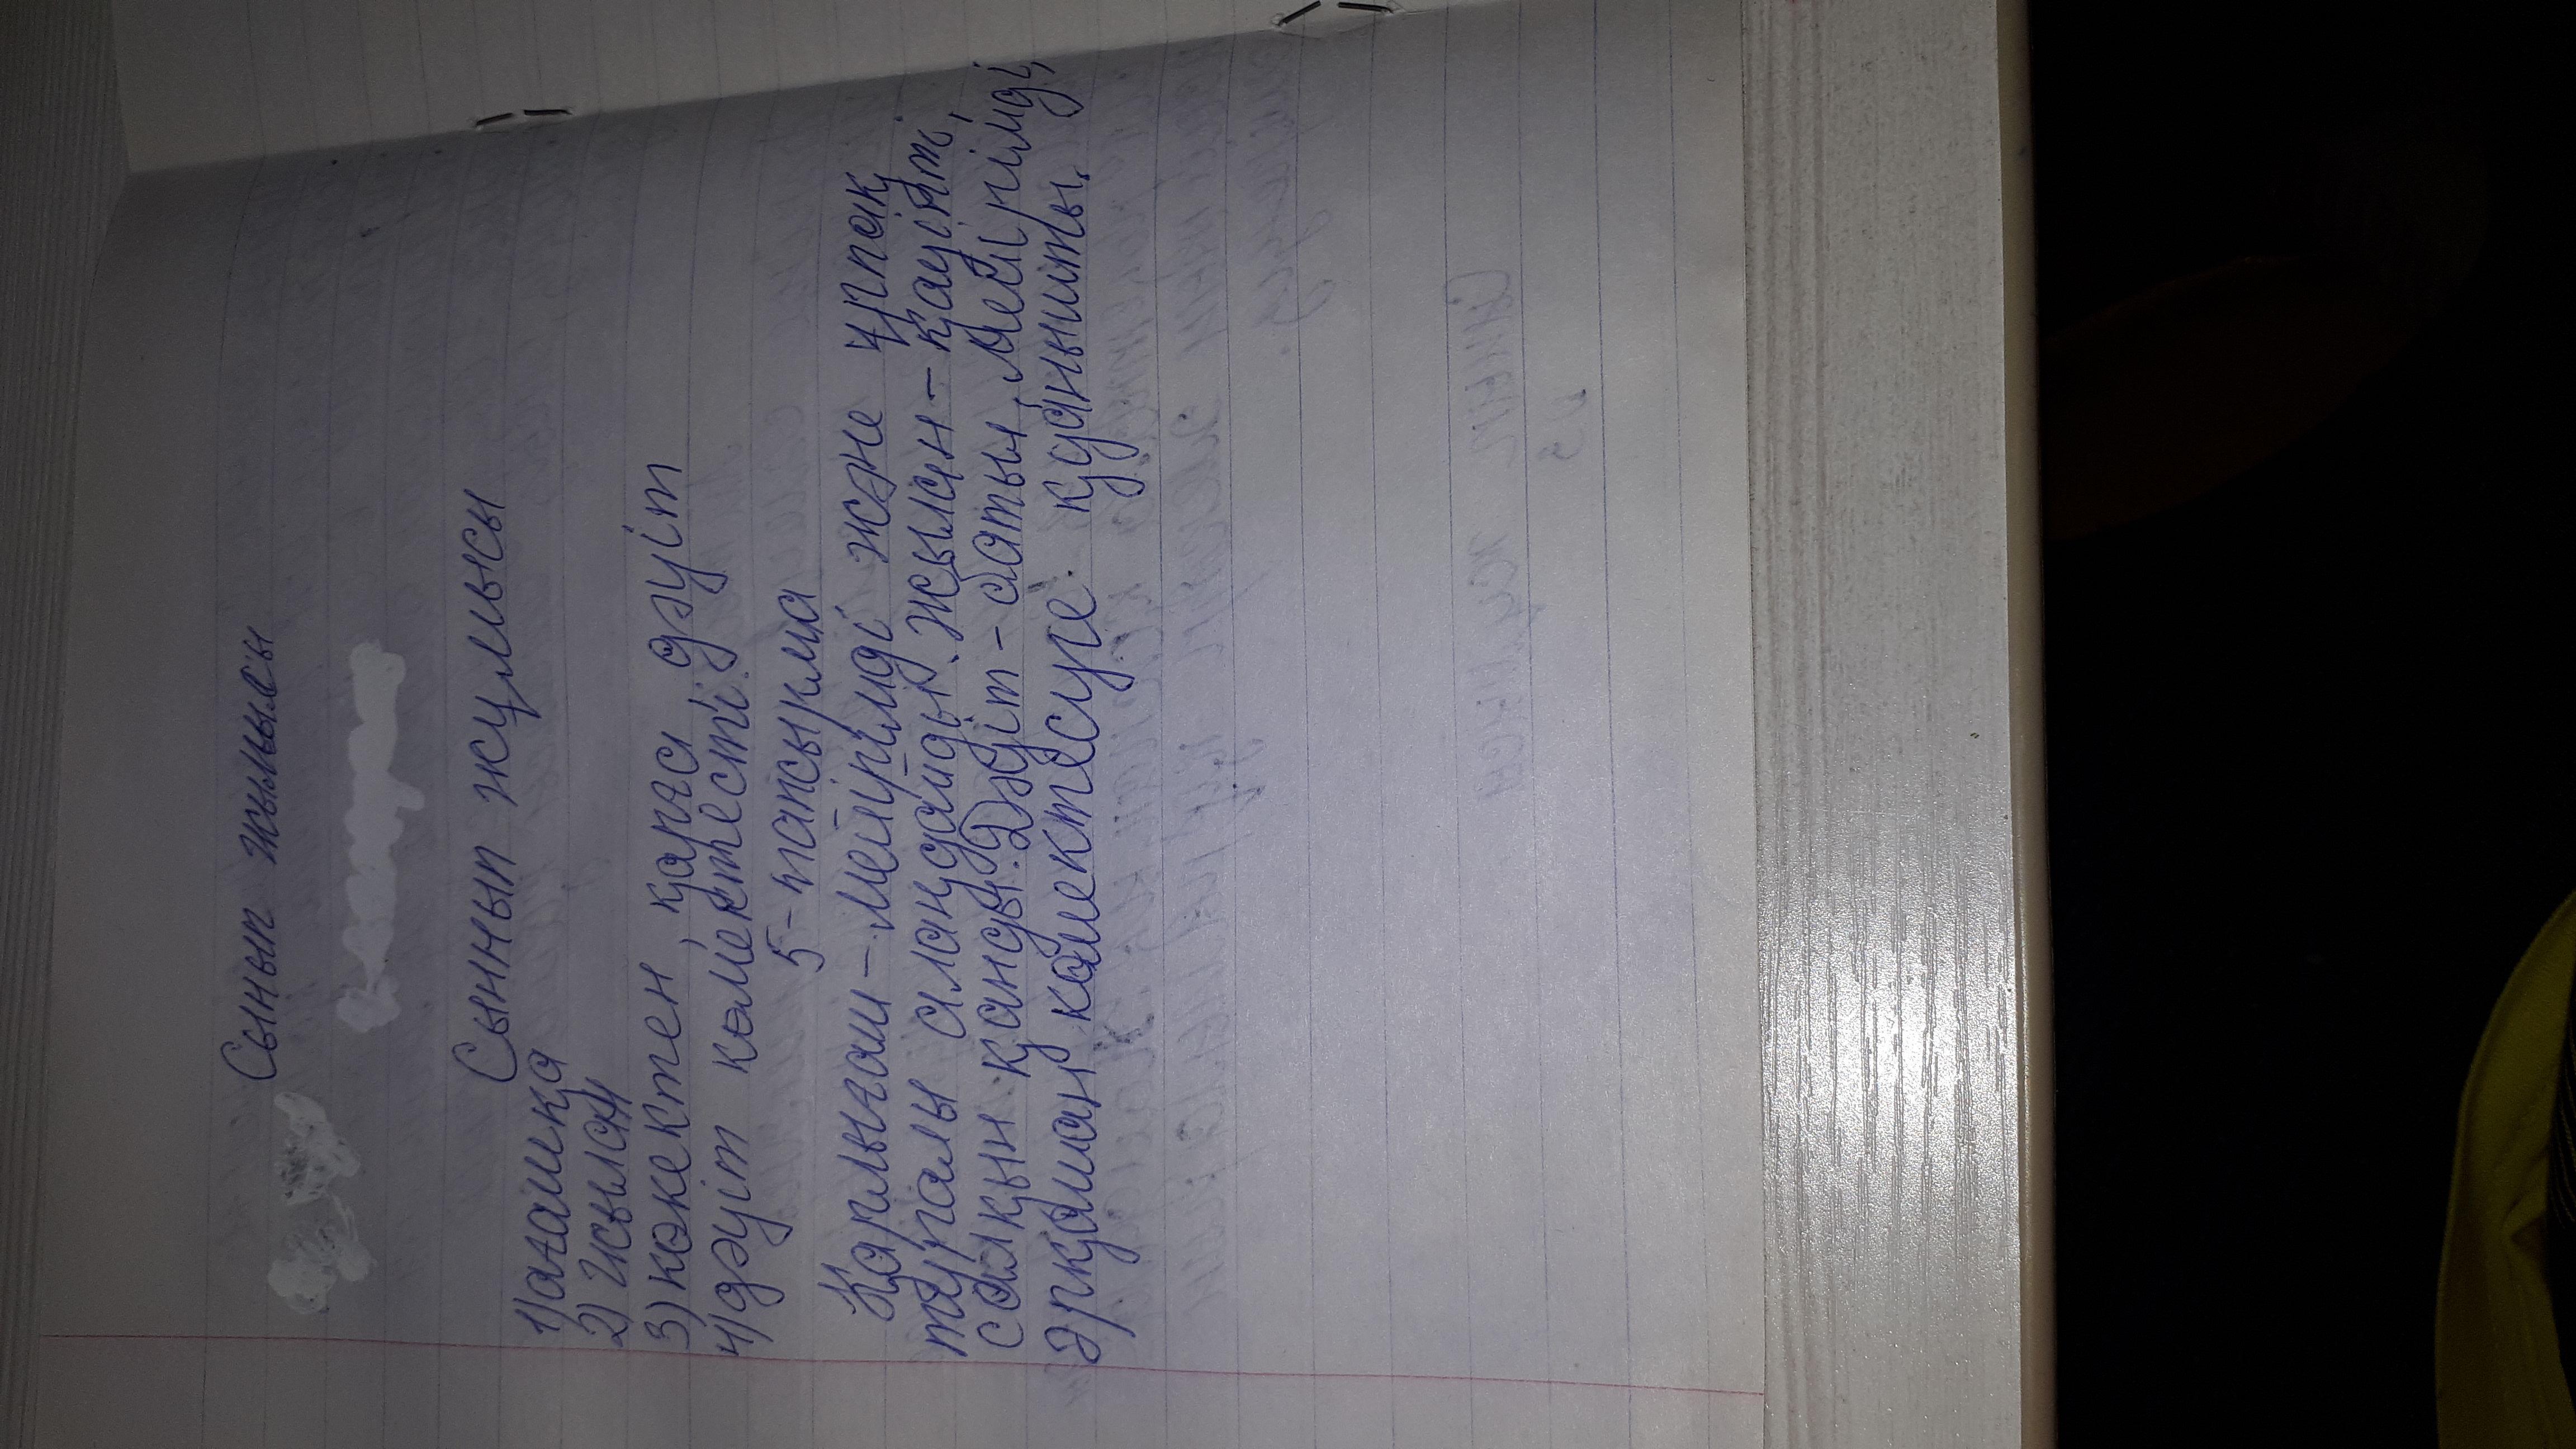 Сынып жымысы
Сыннып жұмысы
1) ағашқа
2) жылан
3) көкектен, қарға дәуіт
4) дәуіт көмектесті.
5-тапсырма
Қарлығаш – мейірімді және ұрпақ
туралы аландайды. Жылан – қауіпті,
салқын қанды. Дәуіт – батыл, мейірімді,
әрқашан көмектесуге қуанышты.